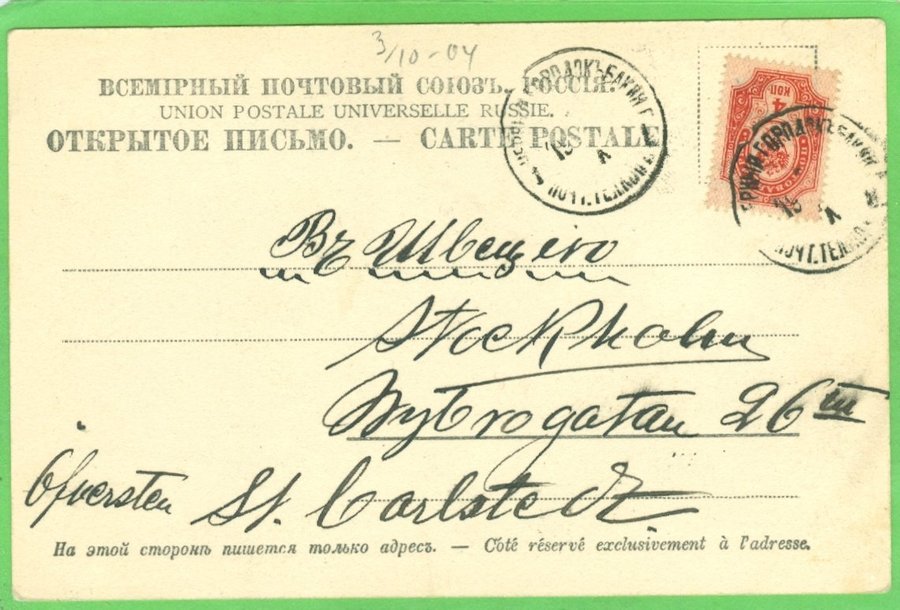 3/10-04
ВСЕМІРНЫЙ ПОЧТОВЫЙ СОЮЗЪ. РОССІЯ.
UNION POSTALE UNIVERSELLE RUSSIE.
ОТКРЫТОЕ ПИСЬМО. — CARTE POSTALE
ГОРОДОКЪ-БАКИН. Г.
ПОЧТ. ТЕЛ.
4 КОП
ГОРОДОКЪ-БАКИН
ПОЧТ. ТЕЛ.
Въ Швецію
Stockholm
Nybrogatan 26
Öfversten St. Carlstedt
На этой сторонѣ пишется только адресъ. — Côté réservé exclusivement à l'adresse.